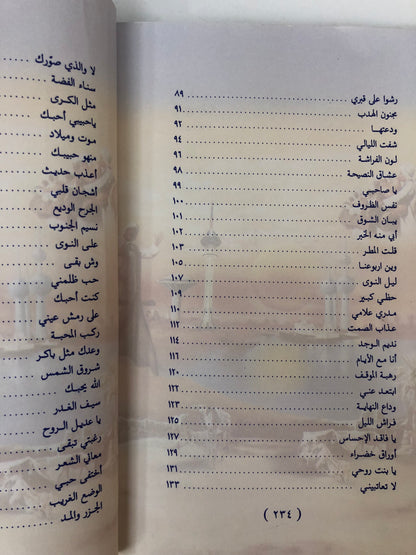 رشوا على قبري ........ ٨٩
مجنون الهدب ........ ٩١
ودعتها ........ ٩٢
شفت الليالي ........ ٩٤
لون الفراشة ........ ٩٦
عشاق النصيحة ........ ٩٨
يا صاحبي ........ ٩٩
نفس الظروف ........ ١٠٠
يبان الشوق ........ ١٠١
أبي منه الخبر ........ ١٠٢
قلت المطر ........ ١٠٣
وين اربوعنا ........ ١٠٥
ليل النوى ........ ١٠٧
حظي كبير ........ ١٠٩
مدري علامي ........ ١١٠
عذاب الصمت ........ ١١٢
نديم الوجد ........ ١١٤
أنا مع الأيام ........ ١١٧
رهبة الموقف ........ ١٢٠
ابتعد عني ........ ١٢٢
وداع النهاية ........ ١٢٣
فراش الليل ........ ١٢٥
يا فاقد الإحساس ........ ١٢٧
أوراق خضراء ........ ١٢٩
يا بنت روحي ........ ١٣١
لا تعاتبيني ........ ١٣٣
( ٢٣٤ )
لا والذي صوّرك ........
سناء الفضة ........
مثل الكرى ........
ياحبيبي أحبك ........
موت وميلاد ........
منهو حبيبك ........
أعذب حديث ........
أشجان قلبي ........
الجرح الوديع ........
نسيم الجنوب ........
على النوى ........
وش بقى ........
حب ظلمني ........
كنت أحبك ........
على رمش عيني ........
ركب المحبة ........
وعدك مثل باكر ........
شروق الشمس ........
الله يحبك ........
سيف الغدر ........
يا عديل الروح ........
رغبتي تبقى ........
معاني الشعر ........
أختفى حبي ........
الوضع الغريب ........
الجزر والمد ........